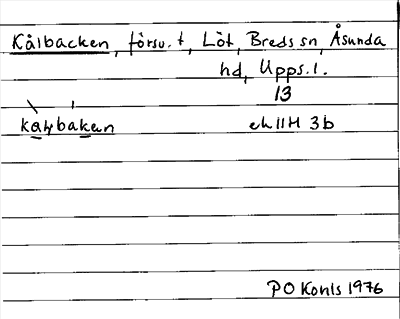 Kålbacken, försv. t, Löt, Breds sn, Åsunda
hd, Upps. l.
13
3b
PO Konls 1976